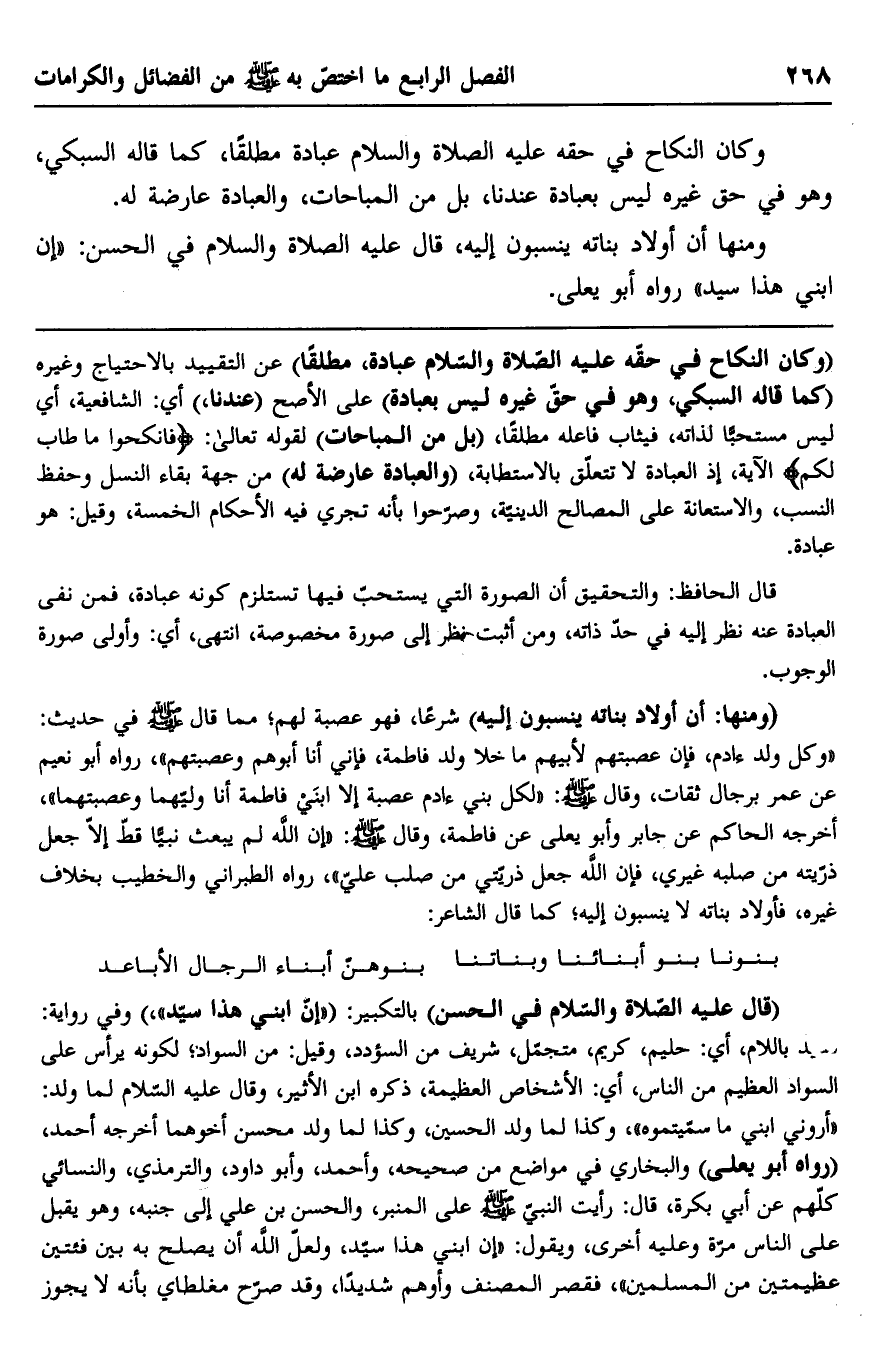 ٢٦٨ الفصل الرابع ما اختصّ به ﷺ من الفضائل والكرامات
وكان النكاح في حقه عليه الصلاة والسلام عبادة مطلقًا، كما قاله السبكي،
وهو في حق غيره ليس بعبادة عندنا، بل من المباحات، والعبادة عارضة له.
ومنها أن أولاد بناته ينسبون إليه، قال عليه الصلاة والسلام في الحسن: «إن
ابني هذا سيد» رواه أبو يعلى.
(وكان النكاح في حقّه عليه الصّلاة والسّلام عبادة، مطلقًا) عن التقييد بالاحتياج وغيره
(كما قاله السبكي، وهو في حقّ غيره ليس بعبادة) على الأصح (عندنا،) أي: الشافعية، أي
ليس مستحبًّا لذاته، فيثاب فاعله مطلقًا، (بل من المباحات) لقوله تعالىٰ: ﴿فانكحوا ما طاب
لكم﴾ الآية، إذ العبادة لا تتعلّق بالاستطابة، (والعبادة عارضة له) من جهة بقاء النسل وحفظ
النسب، والاستعانة على المصالح الدينيّة، وصرّحوا بأنه تجري فيه الأحكام الخمسة، وقيل: هو
عبادة.
قال الحافظ: والتحقيق أن الصورة التي يستحبّ فيها تستلزم كونه عبادة، فمن نفى
العبادة عنه نظر إليه في حدّ ذاته، ومن أثبت نظر إلى صورة مخصوصة، انتهى، أي: وأولى صورة
الوجوب.
(ومنها: أن أولاد بناته ينسبون إليه) شرعًا، فهو عصبة لهم؛ مما قال ﷺ في حديث:
«وكل ولد ءادم، فإن عصبتهم لأبيهم ما خلا ولد فاطمة، فإني أنا أبوهم وعصبتهم»، رواه أبو نعيم
عن عمر برجال ثقات، وقال ﷺ: «لكل بني ءادم عصبة إلا ابنَيْ فاطمة أنا وليّهما وعصبتهما»،
أخرجه الحاكم عن جابر وأبو يعلى عن فاطمة، وقال ﷺ: «إن اللَّه لم يبعث نبيًّا قطّ إلاّ جعل
ذرّيته من صلبه غيري، فإن اللَّه جعل ذريّتي من صلب عليّ»، رواه الطبراني والخطيب بخلاف
غيره، فأولاد بناته لا ينسبون إليه؛ كما قال الشاعر:
بنونا بنو أبنائنا وبناتنا بنوهنّ أبناء الرجال الأباعد
(قال عليه الصّلاة والسّلام في الحسن) بالتكبير: («إنّ ابني هذا سيّد»،) وفي رواية:
باللام، أي: حليم، كريم، متجمّل، شريف من السؤدد، وقيل: من السواد؛ لكونه يرأس على
السواد العظيم من الناس، أي: الأشخاص العظيمة، ذكره ابن الأثير، وقال عليه السّلام لما ولد:
«أروني ابني ما سمّيتموه»، وكذا لما ولد الحسين، وكذا لما ولد محسن أخوهما أخرجه أحمد،
(رواه أبو يعلى) والبخاري في مواضع من صحيحه، وأحمد، وأبو داود، والترمذي، والنسائي
كلّهم عن أبي بكرة، قال: رأيت النبيّ ﷺ على المنبر، والحسن بن علي إلى جنبه، وهو يقبل
على الناس مرّة وعليه أخرى، ويقول: «إن ابني هذا سيّد، ولعلّ اللَّه أن يصلح به بين فئتين
عظيمتين من المسلمين»، فقصر المصنف وأوهم شديدًا، وقد صرّح مغلطاي بأنه لا يجوز